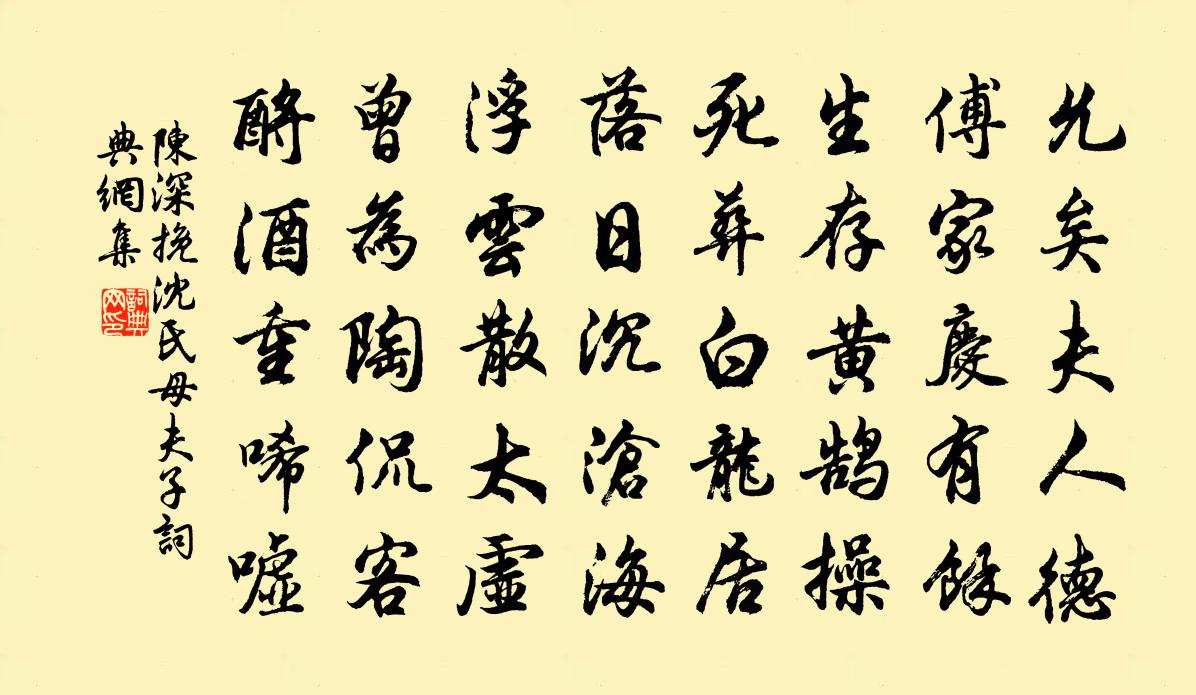 允矣夫人德
傅家慶有餘
生存黃鵠操
死葬白龍居
落日沉滄海
浮雲散太虛
曾為陶侃客
酹酒重唏噓
陳深挽沈氏母夫子詞
典網集
詞典網印